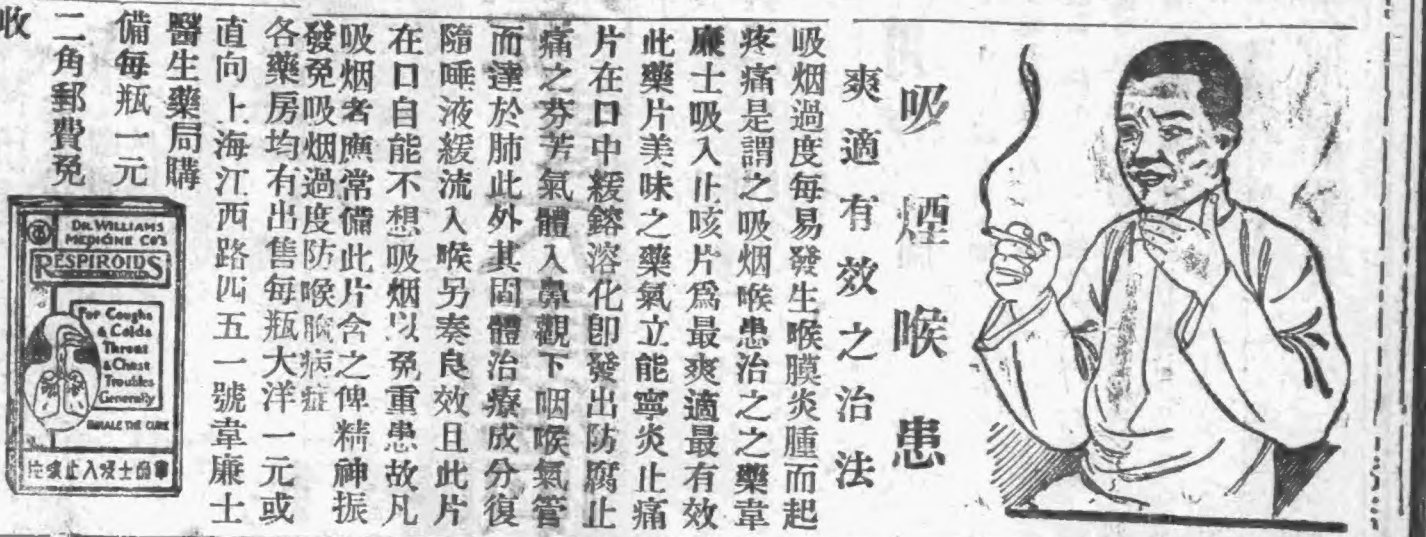 吸煙喉患
爽適有效之治法
吸烟過度每易發生喉膜炎腫而起
疼痛是謂之吸烟喉患治之之藥韋
廉士吸入止咳片爲最爽適最有效
此藥片美味之藥氣立能寧炎止痛
片在口中緩鎔溶化卽發出防腐止
痛之芬芳氣體入鼻觀下咽喉氣管
而達於肺此外其固體治療成分復
隨唾液緩流入喉另奏良效且此片
在口自能不想吸烟以免重患故凡
吸烟者應常備此片含之俾精神振
發免吸烟過度防喉胸病症
各藥房均有出售每瓶大洋一元或
直向上海江西路四五一號韋廉士
醫生藥局購
備每瓶一元
二角郵費免
收
DR. WILLIAMS
MEDICINE CO'S
RESPIROIDS
For Coughs
& Colds
Throat
& Chest
Troubles
Generally
INHALE THE CURE
韋廉士吸入止咳片